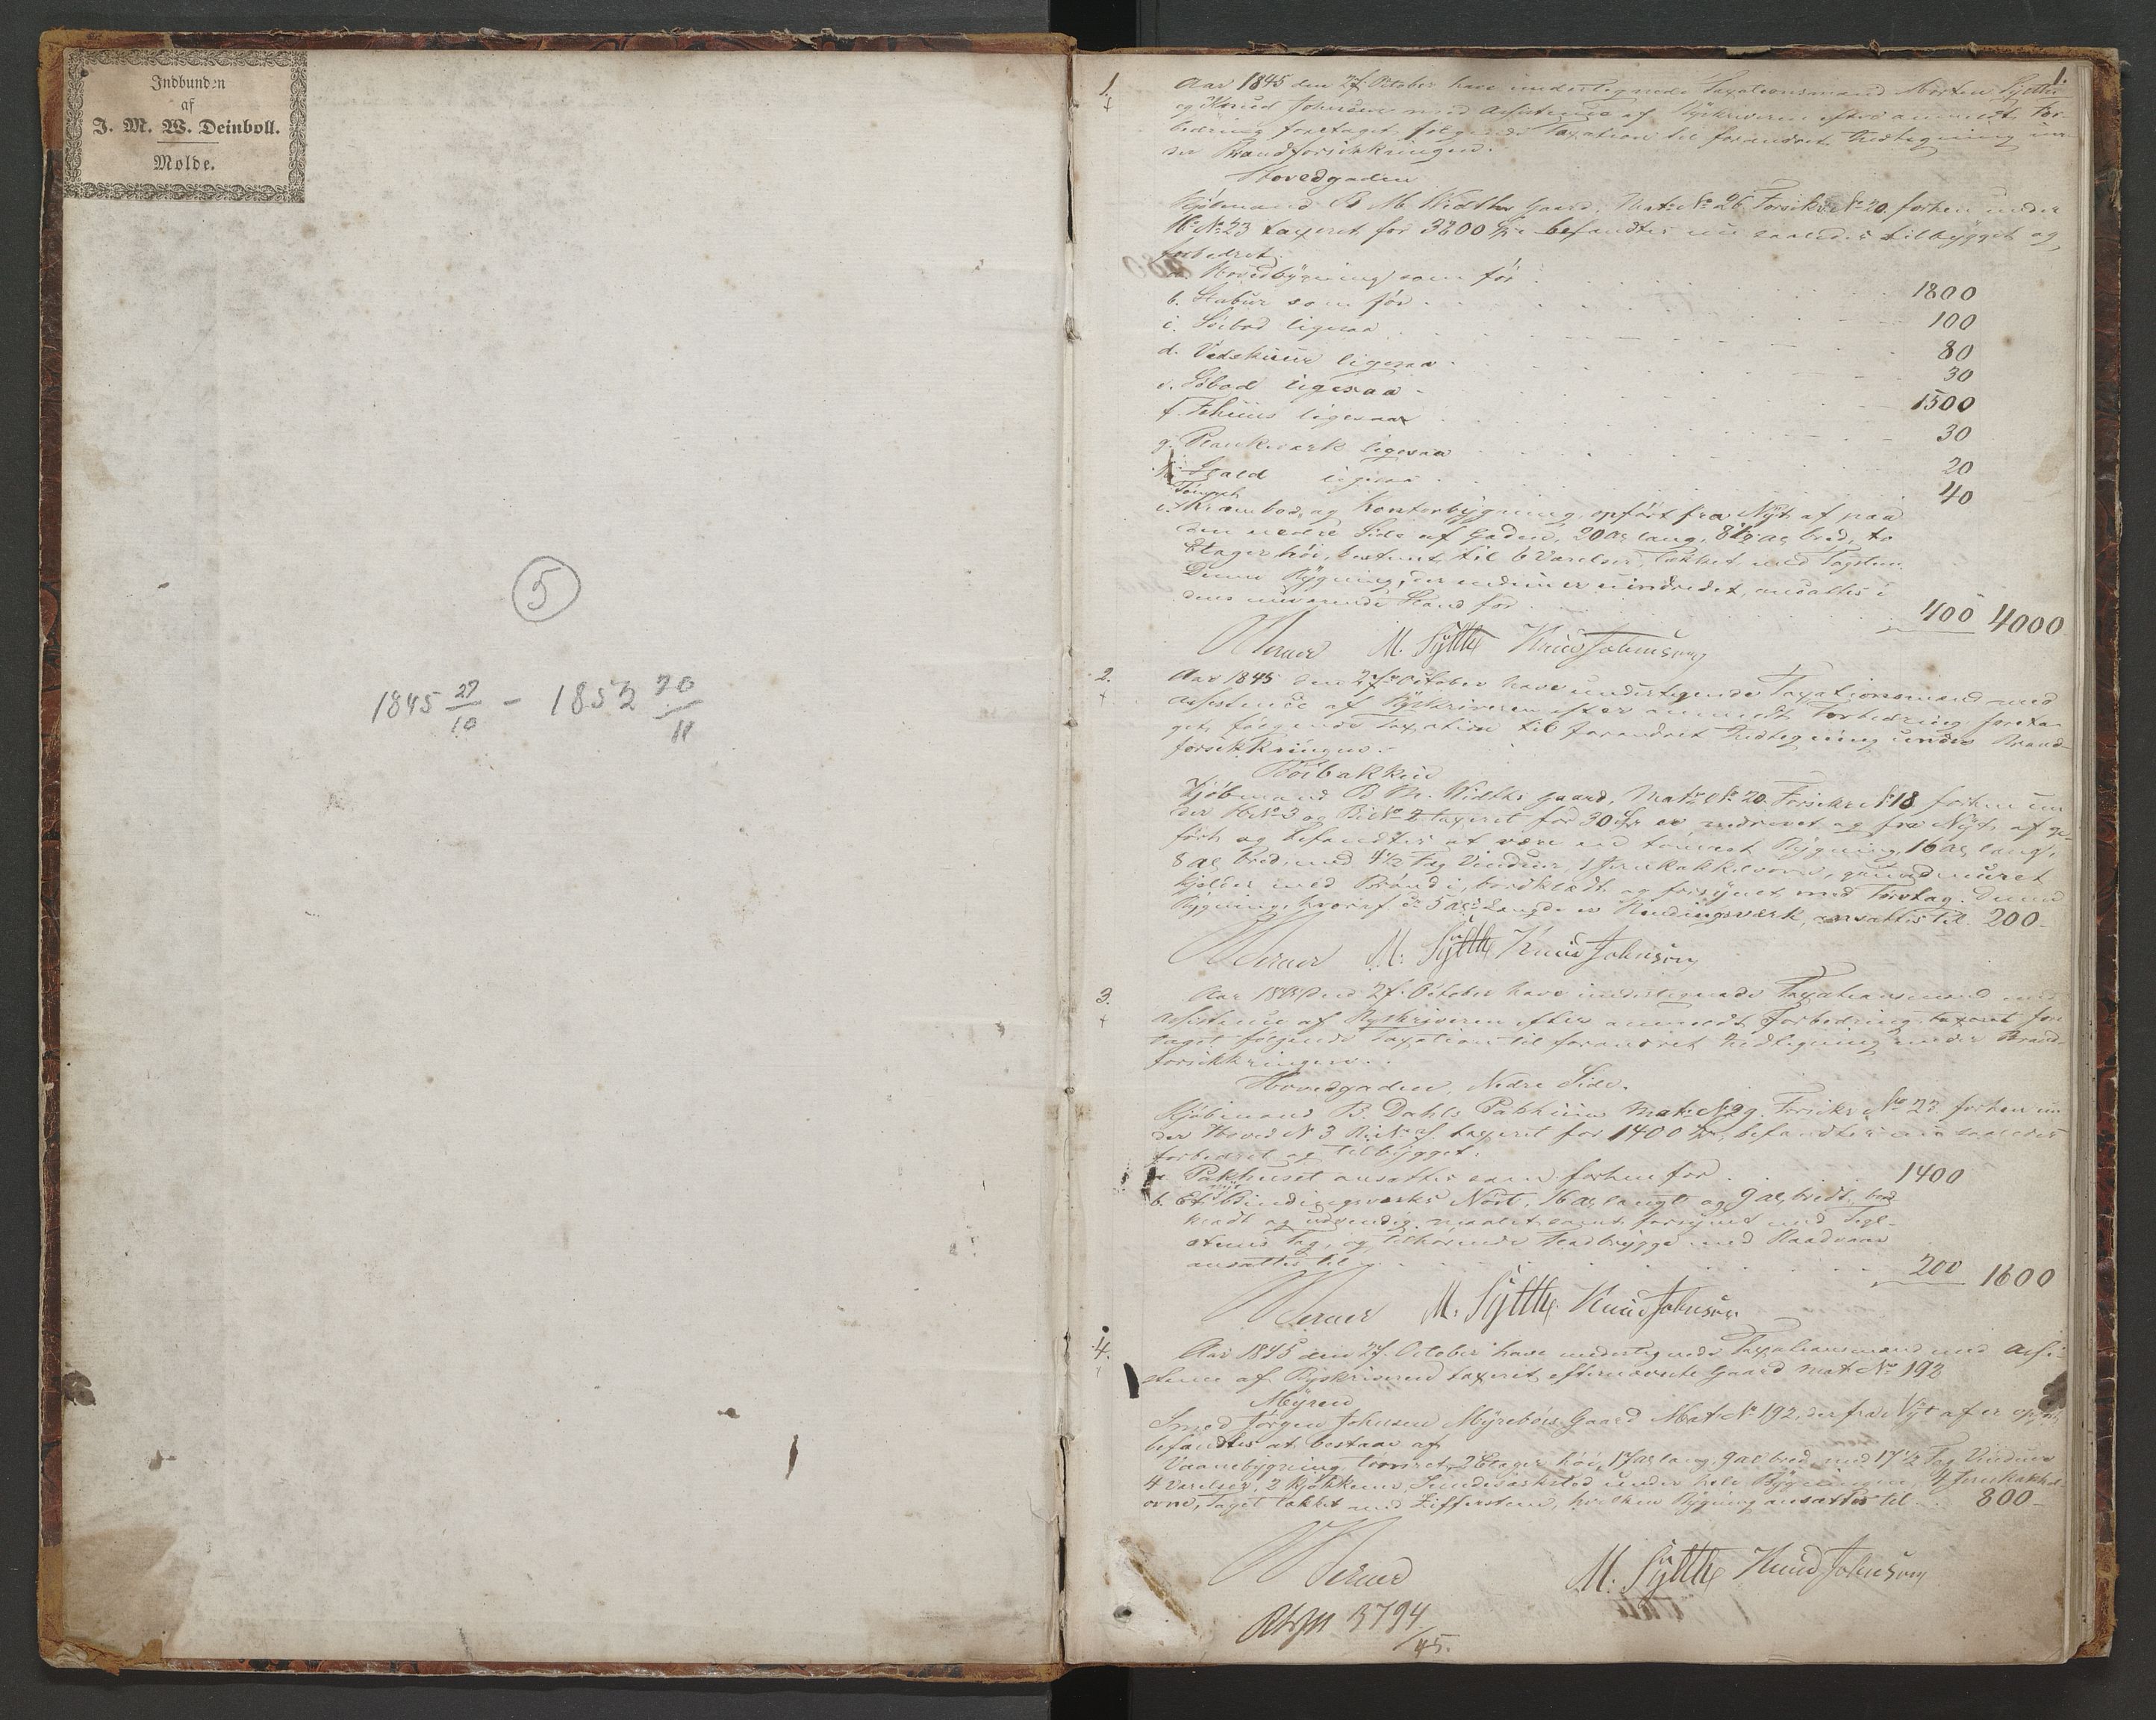 Indbunden
af
J. M. W. Deinboll.
Molde.
5
1845 27/10 - 1852 20/11
1.
1.
Aar 1845 den 27. October have undertegnede Taxationsmænd Morten Sylthe
og Knud Johnsen med Assistence af Byskriveren efter anmeldt For-
bedring foretaget følgende Taxation til forandret Nedtegning un-
der Brandforsikkringen.
Hovedgaden
Kjöbmand B M Widths Gaard, Matr. No 26. Forsikr No 20. forhen under
H. No 23 taxeret for 3200 befandtes nu saaledes tilbygget og
forbedret
a. Hovedbygning som för 1800
b. Stabur som för 100
c. Söebod ligesaa 80
d. Vedskuur ligesaa 30
e. Söbod ligesaa 1500
f. Fehuus ligesaa 30
g. Plankeværk ligesaa 20
h. ligesaa 40
i. Tömret Krambod og Kontorbygning, opfört fra Nyt af paa
den nedre Side af Gaden, 20 al lang, 8 1/2 al bred, to
Etager höi, bestemt til 6 Værelser, tækket med Tagsteen.
Denne Bygning, der endnu er uindredet, ansattes i
dens nuværende Stand for 400 4000
Werner M. Sylthe Knud Johnsen
2.
Aar 1845 den 27. October have undertegnede Taxationsmænd med
Assistence af Byskriveren efter anmeldt Forbedring foreta-
get følgende Taxation til forandret Nedtegning under Brand-
forsikkringen.
Kjöbmand B M. Widths Gaard, Matr. No 20. Forsikr. No 18 forhen un-
der H. No 3 og Bi No 2 taxeret for 30 er nedrevet og fra Nyt af op-
fört, og befandtes at være en tömret Bygning, 16 al lang,
8 al bred, med 4 1/2 Fag Vinduer, 1 Jernkakkelovn, grundmuret
Kjelder med Brönd i, bordklædt og forsynet med Torvtag. Denne
Bygning, hvoraf 5 al i Længde er Bindingsværk, ansattes til 200-
Werner M. Sylthe Knud Johnsen
3.
Aar 1845 den 27. October have undertegnede Taxationsmænd med
Assistence af Byskriveren efter anmeldt Forbedring taxeret fore-
taget følgende Taxation til forandret Nedtegning under Brand-
forsikkringen.
Hovedgaden, Nedre Side.
Kjöbmand B. Dahls Pakhuus Forsikr No 23 forhen un-
der Hoved No 3 Bi No taxeret for 1400 befandtes nu saaledes
forbedret og tilbygget.
a. Pakhuset ansattes som forhen for 1400
b. Et nyt Bindingsværks Nöst, 16 al langt og 9 al bredt, bord-
klædt og udvendig malet samt forsynet med Tegl-
steens Tag, og tilhörende
ansattes til 200 1600
Werner M. Sylthe. Knud Johnsen
4.
Aar 1845 den 27. October have undertegnede Taxationsmænd med Assi-
stence af Byskriveren taxeret efternævnte Gaard Mat No 192
Myren
Smed Jörgen Johnsen Myreböes Gaard Mat. No 192, der fra Nyt af er opfört,
befandtes at bestaae af
Vaanebygning tömret, 2 Etager höi, 17 al lang, 9 al bred med 17 1/2 Fag Vinduer
4 Værelser, 2 Kjökkener, under hele Bygningen, 4 Jernkakkel-
ovne, Taget tækket med Ziffersteen, hvilken Bygning ansattes til 800-
Werner M. Sylthe Knud Johnsen
3794/45.